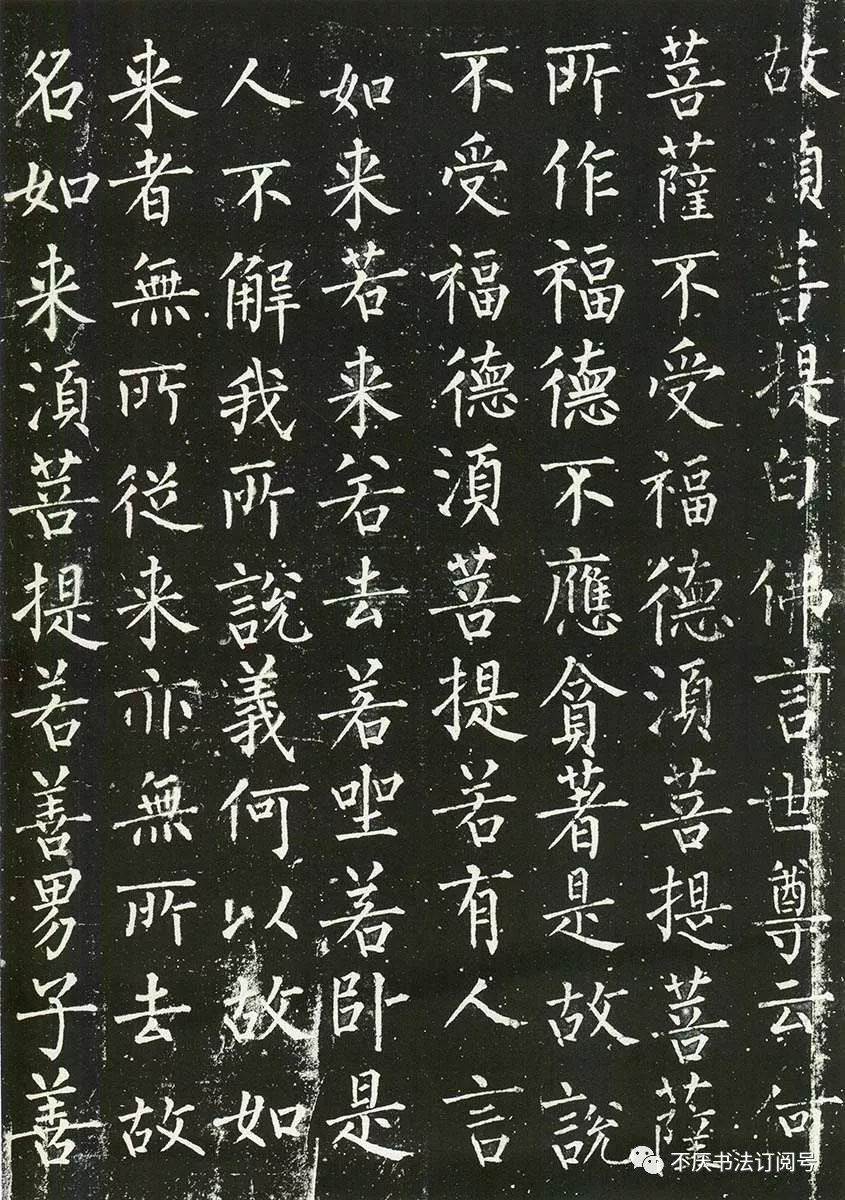 故須菩提白佛言世尊云何
菩薩不受福德須菩提菩薩
所作福德不應貪著是故說
不受福德須菩提若有人言
如来若来若去若坐若卧是
人不解我所說義何以故如
来者無所從来亦無所去故
名如来須菩提若善男子善
不厌书法订阅号